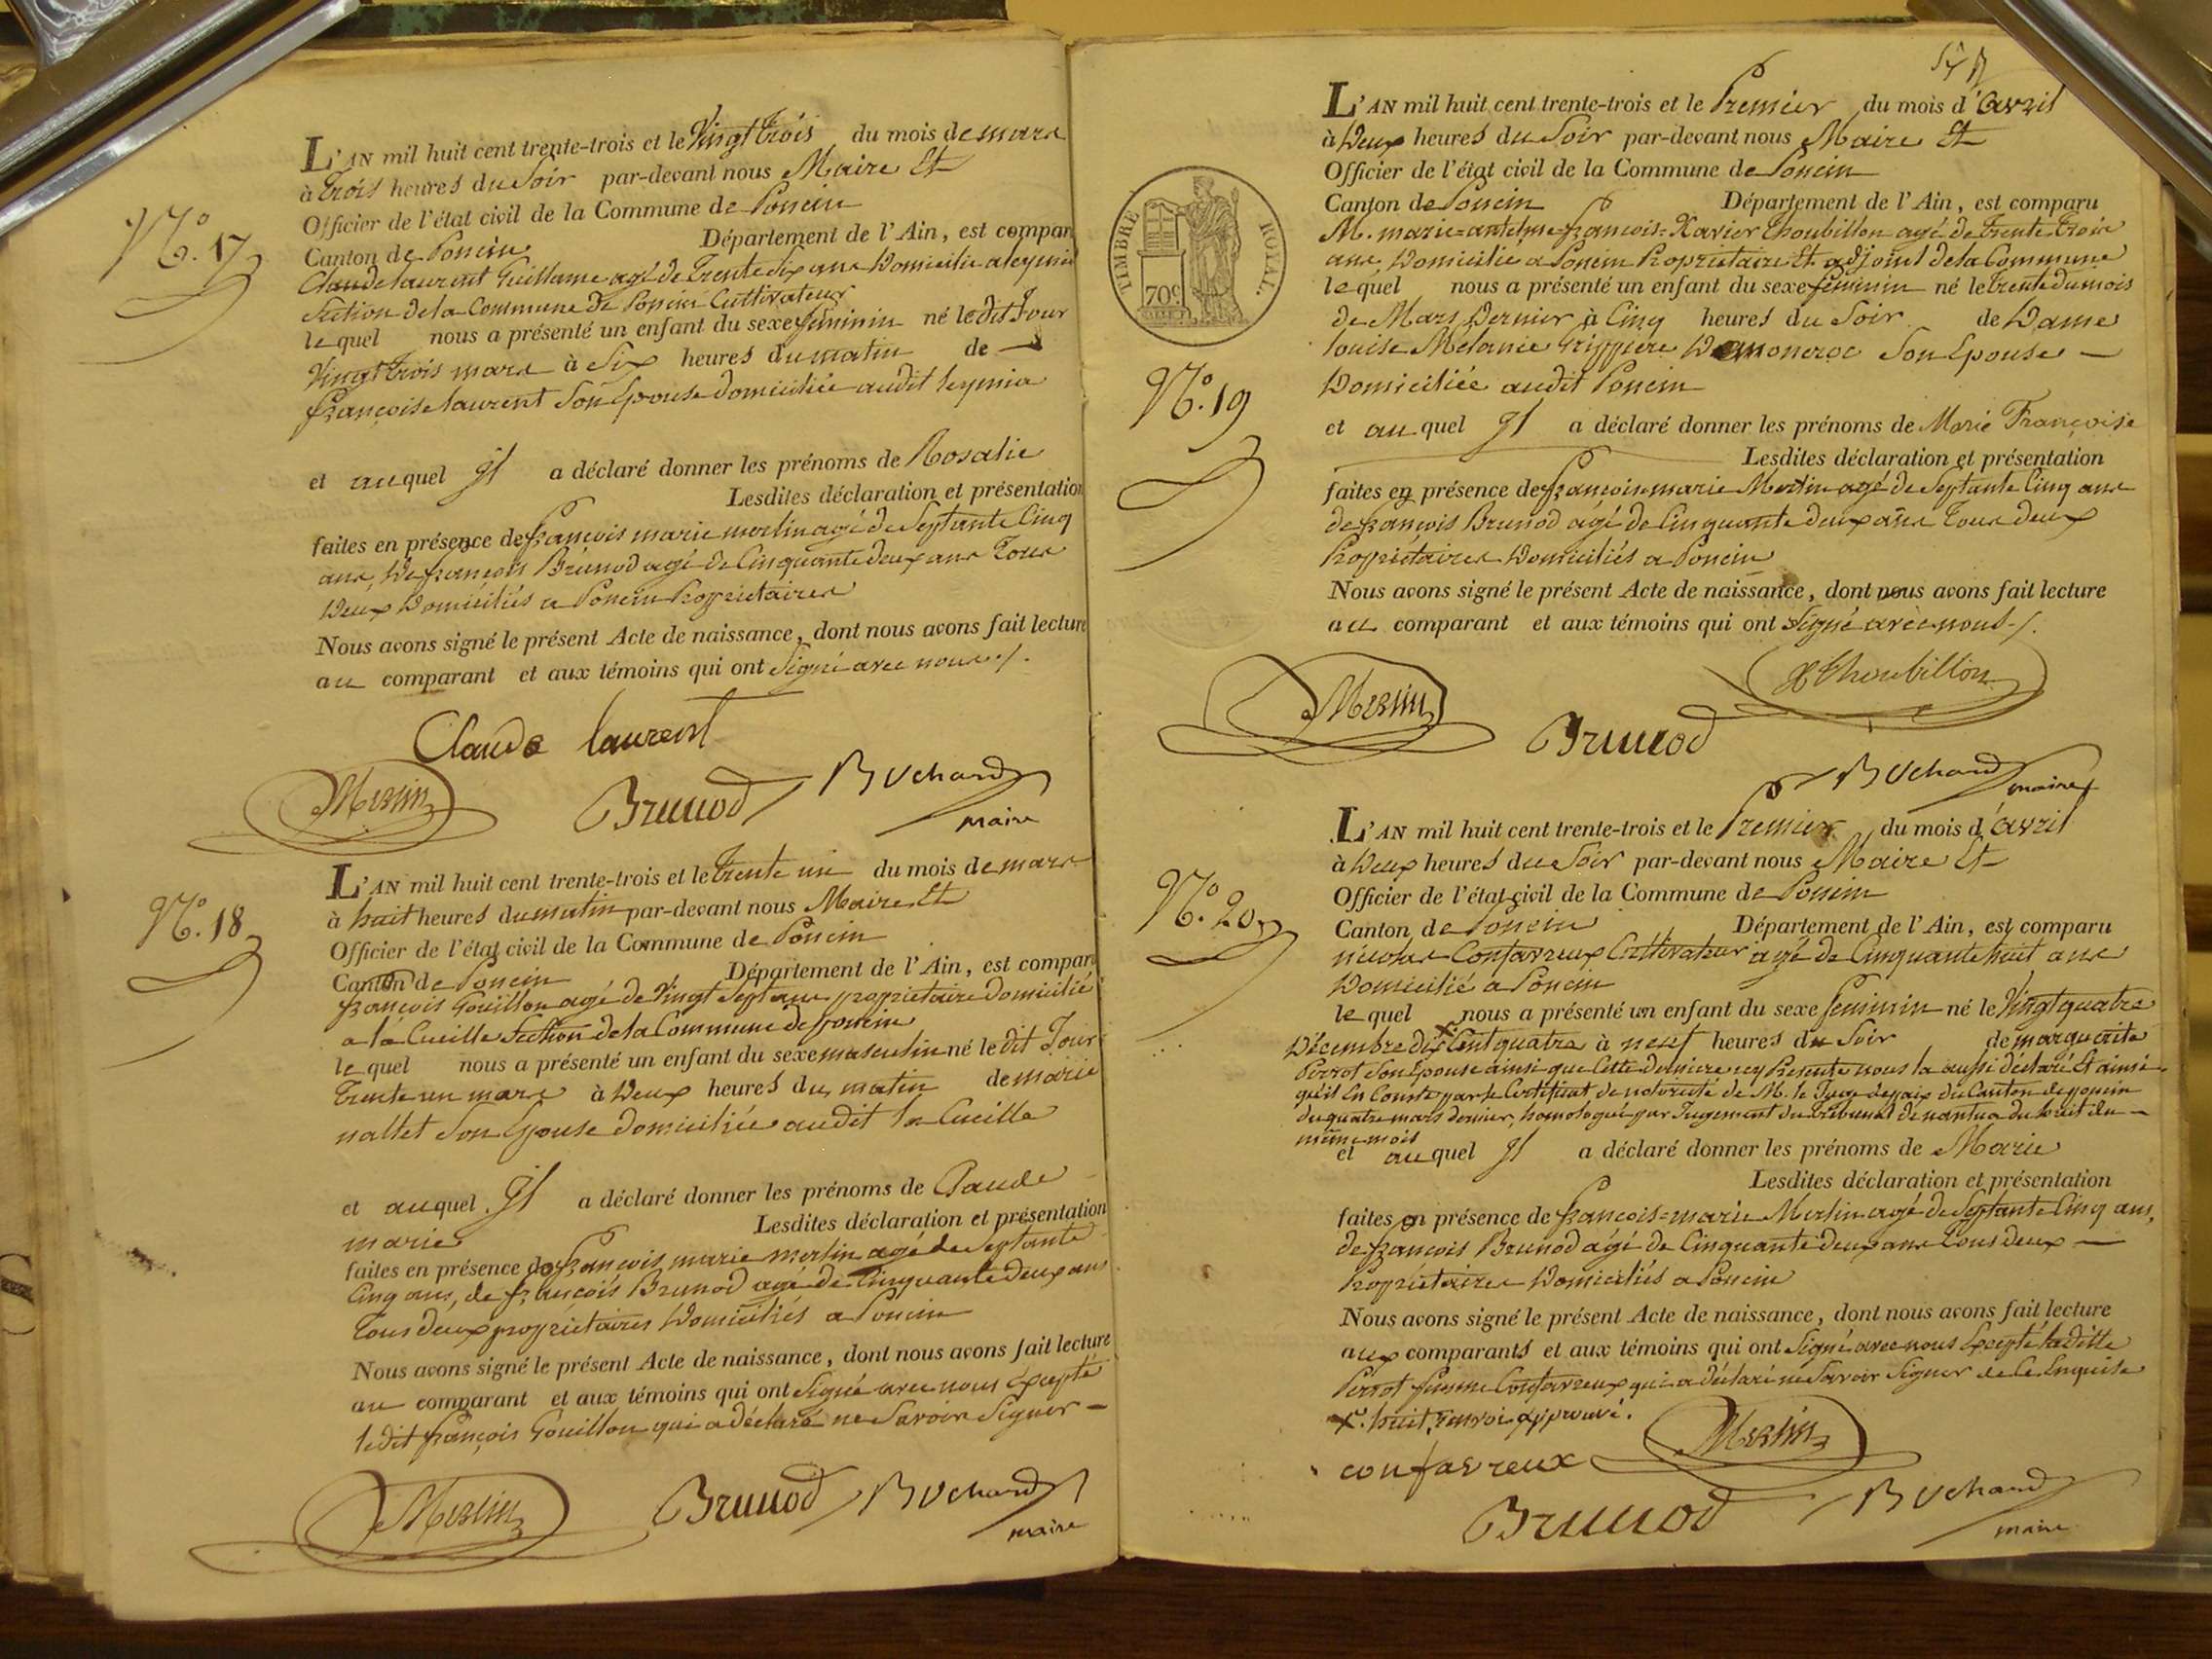 L'AN mil huit cent trente-trois et le Vingt trois du mois de mars
à Trois heures du Soir par-devant nous Maire Et
Officier de l'état civil de la Commune de Poncin
Canton de Poncin Département de l'Ain, est compar
Claude laurent Guillame agé de Trente Six ans Domicilié a leymiat
Section de la Commune De Poncin Cultivateur
lequel nous a présenté un enfant du sexe féminin né le dit Jour
Vingt trois mars à Six heures du matin de
françoise laurent Son Epouse domiciliée audit leymia
N.º 17
et auquel Il a déclaré donner les prénoms de Rosalie
Lesdites déclaration et présentation
faites en présence de françois marie merlin agé de Septante Cinq
ans, De françois Brunod agé de Cinquante deux ans Tous
Deux Domiciliés a Poncin Propriétaires
Nous avons signé le présent Acte de naissance, dont nous avons fait lecture
au comparant et aux témoins qui ont Signé avec nous ./.
Claude laurent
Merlin Brunod Buchard
maire
L'AN mil huit cent trente-trois et le Trente un du mois de mars
à huit heures du matin par-devant nous Maire Et
N.º 18
Officier de l'état civil de la Commune de Poncin
Canton de Poncin Département de l'Ain, est compar
françois Gouillon agé de Vingt Sept ans propriétaire Domicilié
a la Cueille Section de la Commune de poncin
lequel nous a présenté un enfant du sexe masculin né le dit Jour
Trente un mars à Deux heures du matin de marie
nallet Son Epouse domiciliée audit la Cueille
et auquel Il a déclaré donner les prénoms de Claude
marie Lesdites déclaration et présentation
faites en présence de françois marie merlin agé de Septante
Cinq ans, de françois Brunod agé de Cinquante deux ans
Tous deux propriétaires Domiciliés a Poncin
Nous avons signé le présent Acte de naissance, dont nous avons fait lecture
au comparant et aux témoins qui ont Signé avec nous Excepté
le dit françois Gouillon qui a déclaré ne Savoir Signer
Merlin Brunod Buchard
maire
L'AN mil huit cent trente-trois et le Premier du mois d'avril
à Deux heures du Soir par-devant nous Maire Et
Officier de l'état civil de la Commune de Poncin
Canton de Poncin Département de l'Ain, est comparu
M. marie=antelme=françois=Xavier Thoubillon agé de Trente Trois
ans, Domicilié a Poncin Propriétaire Et adjoint de la Commune
lequel nous a présenté un enfant du sexe féminin né le trente du mois
de Mars Dernier à Cinq heures du Soir de Dame
louise Mélanie Son Epouse
Domiciliée audit Poncin
TIMBRE ROYAL.
70 c
N.º 19
et auquel Il a déclaré donner les prénoms de Marie Françoise
Lesdites déclaration et présentation
faites en présence de françois marie Merlin agé de Septante Cinq ans
de françois Brunod agé de Cinquante deux ans Tous deux
Propriétaires Domiciliés a Poncin
Nous avons signé le présent Acte de naissance, dont nous avons fait lecture
au comparant et aux témoins qui ont Signé avec nous ./.
X Thoubillon
Merlin Brunod
Buchard
maire
L'AN mil huit cent trente-trois et le Premier du mois d'avril
à Deux heures du Soir par-devant nous Maire Et
Officier de l'état civil de la Commune de Poncin
N.º 20
Canton de Poncin Département de l'Ain, est comparu
nicolas Confavreux Cultivateur agé de Cinquante huit ans
Domicilié a Poncin
lequel nous a présenté un enfant du sexe feminin né le Vingt quatre
Décembre dix x Cent quatre à neuf heures du Soir de marguerite
Perrot Son Epouse ainsi que Cette derniere icy Presente nous la aussi déclaré Et ainsi
qu'il En Conste par le Certificat de notoriété de M. le Juge de paix du Canton de poncin
du quatre mars dernier, homologué par Jugement du Tribunal de nantua du huit du
même mois
et auquel Il a déclaré donner les prénoms de Marie
Lesdites déclaration et présentation
faites en présence de françois=marie Merlin agé de Septante Cinq ans,
de françois Brunod agé de Cinquante deux ans tous deux
Propriétaires Domiciliés a Poncin
Nous avons signé le présent Acte de naissance, dont nous avons fait lecture
aux comparants et aux témoins qui ont Signé avec nous Excepté ladite
Perrot femme Confavreux qui a déclaré ne Savoir Signer de Ce Enquise
x. huit, renvoi approuvé.
confavreux Merlin
Brunod Buchard
maire